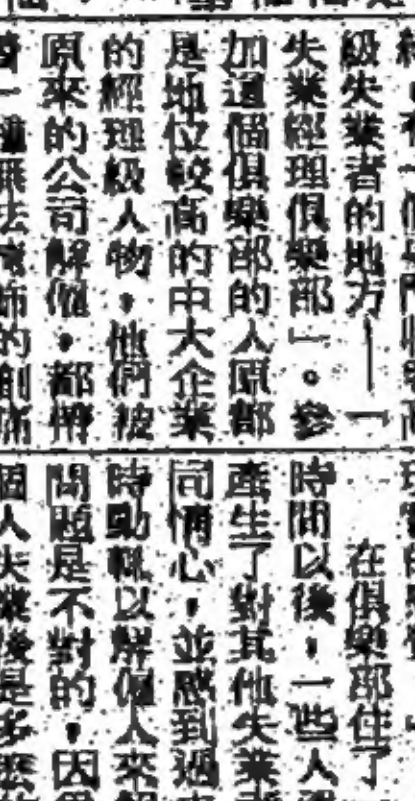 級失業者的地方——「
失業經理俱樂部」。參
加這個俱樂部的人原都
是地位較高的中大企業
的經理級人物,他們被
原來的公司解僱,都
一種無法掩飾的創痛
在俱樂部住了
時間以後,一些人
產生了對其他失業者
同情心,並感到過
時動輒以解僱人來
問題是不對的,因
個人失業後是多麼